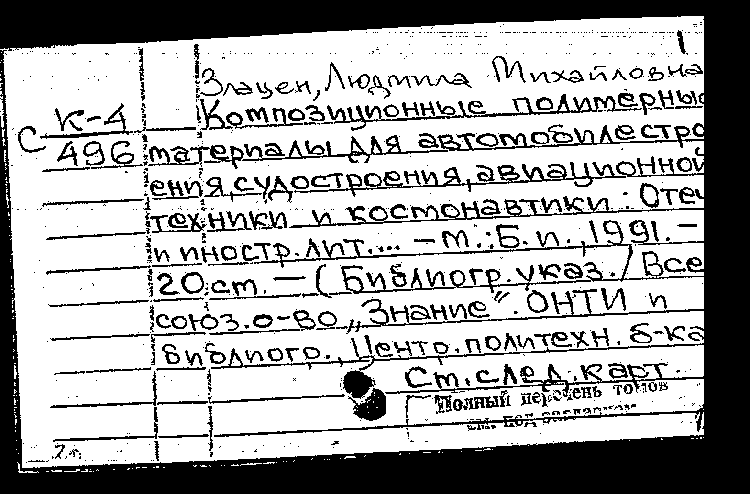 1
Злацен, Людмила Михайловна
К-4 Композиционные полимерные
С 496 материалы для автомобилестро
ения, судостроения, авиационной
техники и космонавтики: Отеч
и иностр. лит.... – М.: Б. и., 1991. –
20 см. – (Библиогр. указ. / Все
союз. о-во „Знание". ОНТИ и
библиогр., Центр. политехн. б-ка
См. след. карт.
Полный перечень томов
см. под заглавием